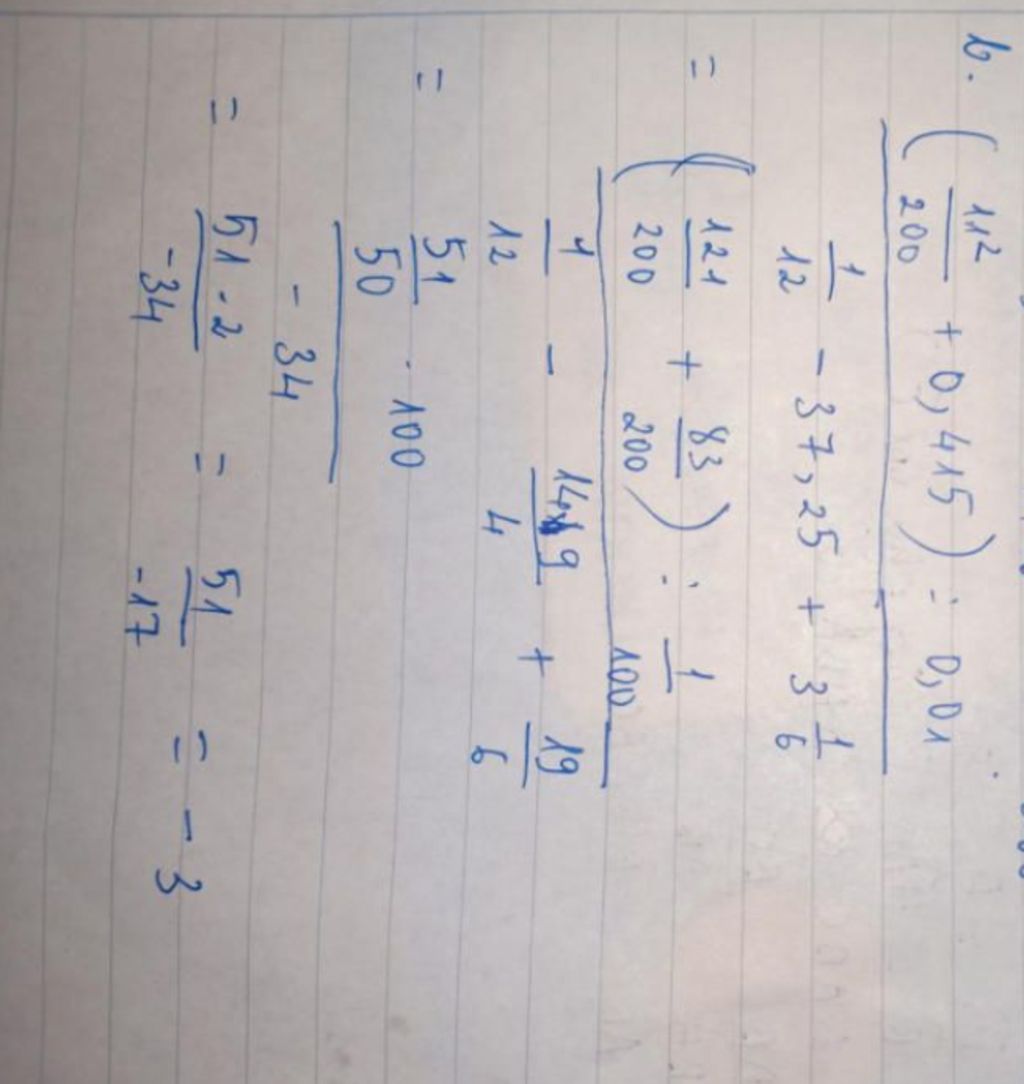 b. (11²/200 + 0,415) : 0,01
1/12 - 37,25 + 3 1/6
= (121/200 + 83/200) : 1/100
1/12 - 149/4 + 19/6
= 51/50 . 100
- 34
= 51.2/-34 = 51/-17 = - 3